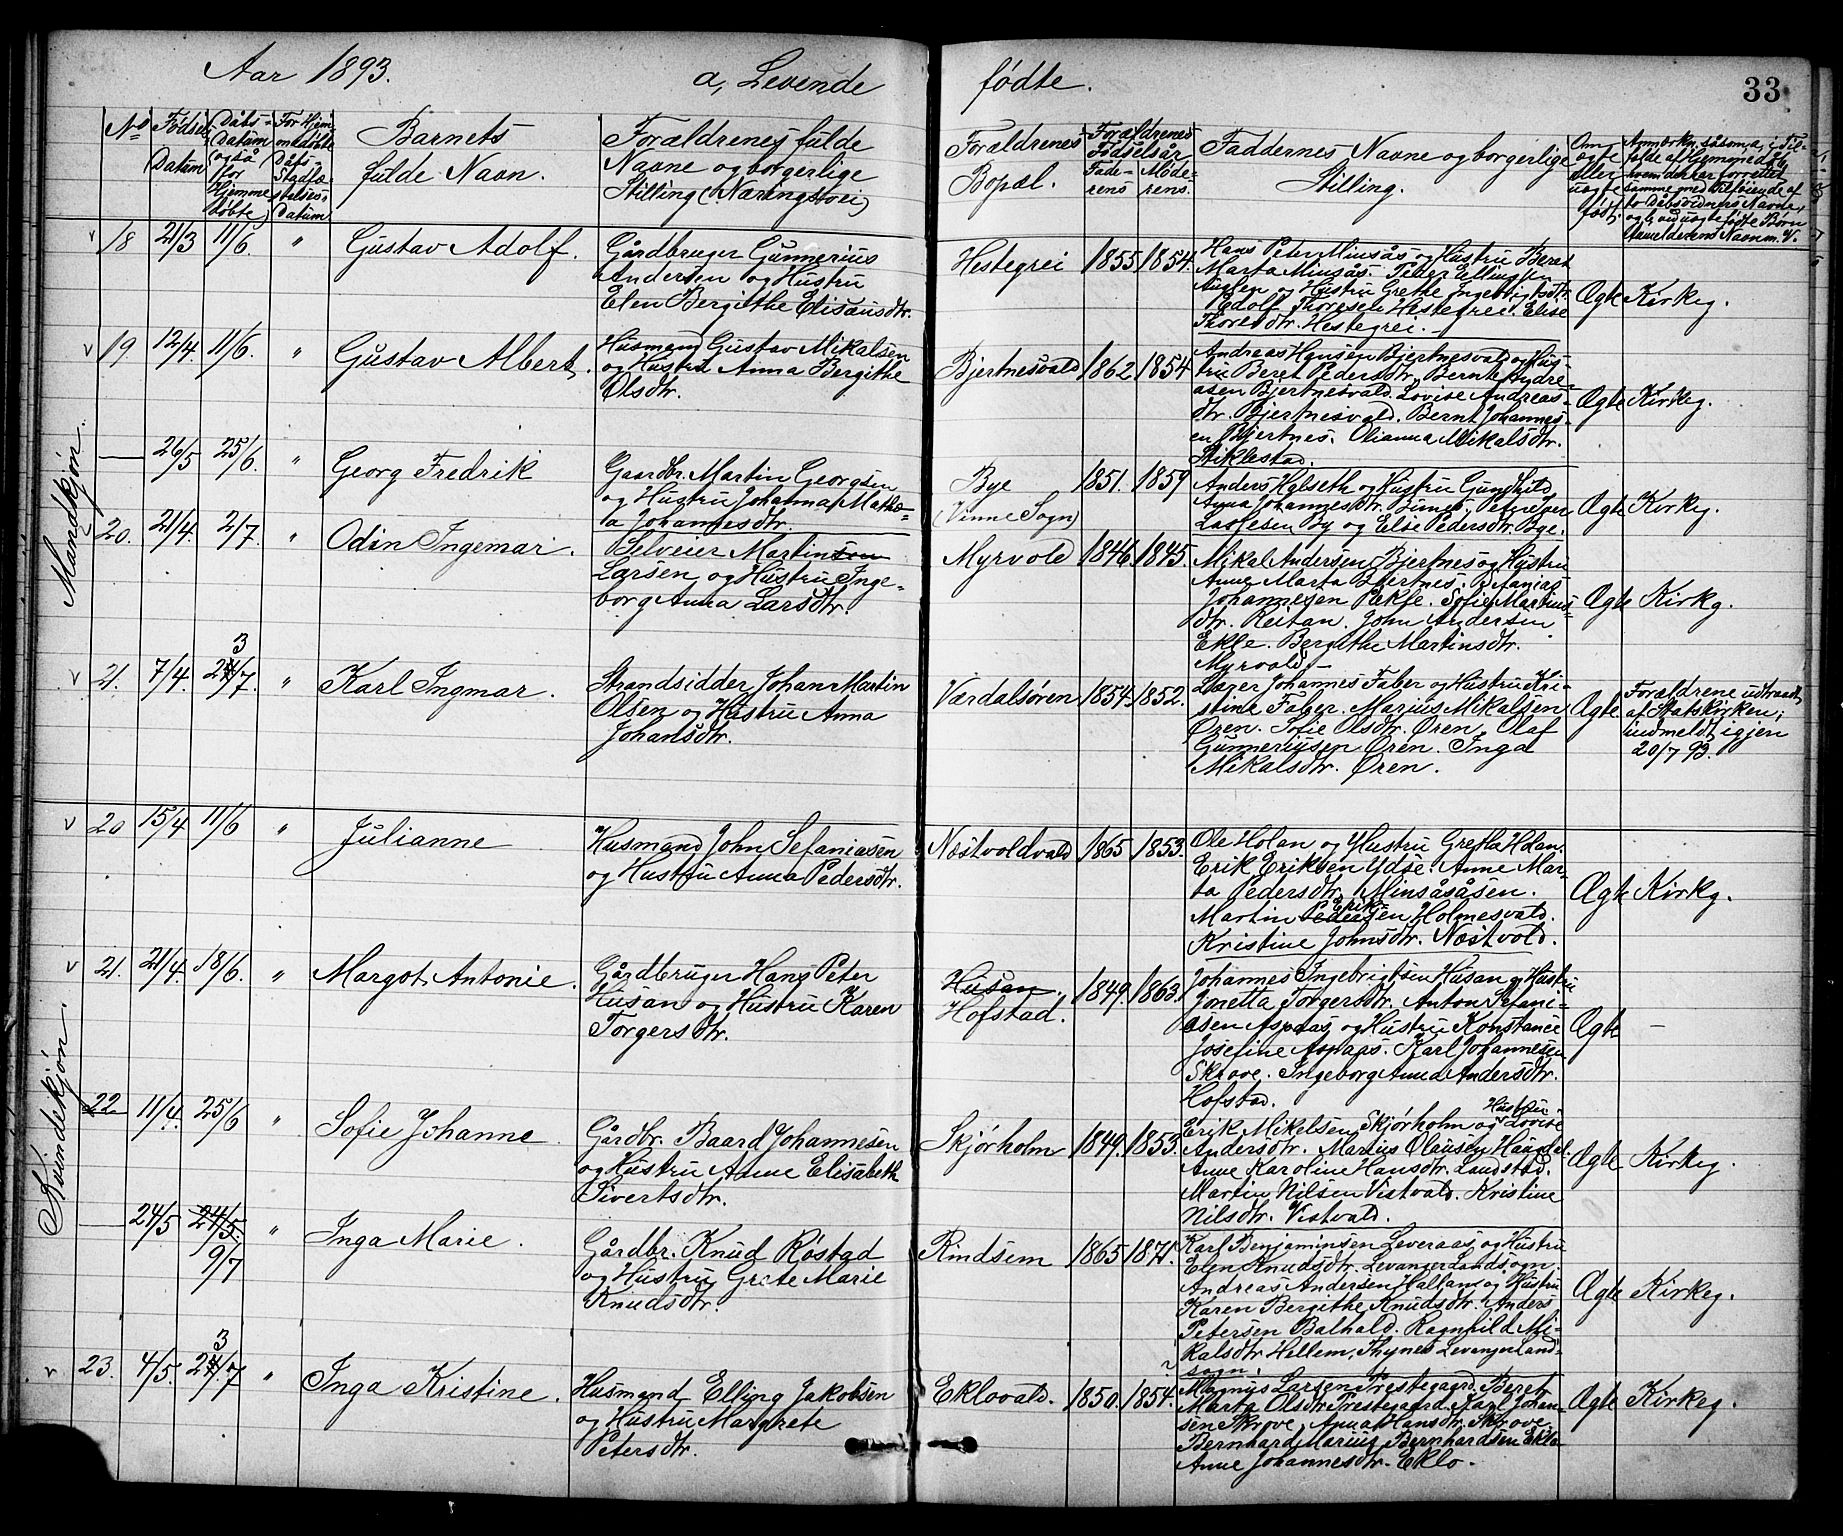 Aar 1893.
a, Levende
fødte.
33
No
Fødsels-
Datum
Dåbs-
Datum
også
for
Hjemme
døbte
For Hjem-
medøbte
Dåbs-
Stadfæ-
stelses-
Datum
Barnets
fulde Navn.
Forældrenes fulde
Navne og borgerlige
Stilling (Næringsvei)
Forældrenes
Bopæl.
Forældrenes
Fødselsår
Fade-
rens
Mode-
rens.
Faddernes Navne og borgerlige
Stilling.
Om
ægte
eller
uægte
født.
Mandkjøn.
18 21/3 11/6. " Gustav Adolf.
Gårdbruger Gunnerius
Andersen og Hustru
Elen Bergithe Elisæusdtr.
Hestegrei 1855 1854.
Hans Peter Minsås og Hustru Beret
Marta Minsås. Peder Ellingsen
og Hustru Grethe Ingebrigtsdtr.
Edolf Thoresen Hestegrei. Elise
Thoresdtr. Hestegrei.
Ægte Kirkeg.
19 12/4. 11/6. " Gustav Albert.
Husmand Gustav Mikalsen
og Hustru Anna Bergithe
Olsdtr.
Bjertnesvald 1862. 1854
Andreas Hansen Bjertnesvald og Hus-
tru Beret Pedersdtr. Bernt Andre-
asen Bjertnesvald. Lovise Andreas-
dtr. Bjertnesvald. Bernt Johannes-
en Bjertnes. Olianna Mikalsdtr.
Stiklestad.
Ægte Kirkeg.
— 26/5 25/6. " Georg Fredrik
Gaardbr. Martin Georgsen
og Hustru Johanna Mathe-
a Johannesdtr.
Bye
(Vinne Sogn)
1851. 1859
Anders Halseth og Hustru Gunhild
Anna Johannesdtr. Petter
By og Else Pedersdtr. Bye.
Ægte Kirkeg.
20. 21/4. 2/7. " Odin Ingemar.
Selveier Martinsen
Larsen og Hustru Inge-
borg Anna Larsdtr.
Myrvold 1846. 1845.
Mikal Andersen Bjertnes og Hustru
Anne Marta Bjertnes.
Johannesen Ekle. Sofie Martins-
dtr. Reitan. John Andersen
Ekle. Bergithe Martinsdtr.
Myrvold
Ægte Kirkg.
3
21. 7/4. 24/7. " Karl Ingmar.
Strandsidder Johan Martin
Olsen og Hustru Anna
Johansdtr.
Værdalsøren 1854. 1852.
Johannes Faber og Hustru Kri-
stine Faber. Marius Mikalsen
Øren. Sofie Olsdtr. Øren. Olaf
Gunneriusen Øren. Inga
Mikalsdtr. Øren.
Ægte
Forældrene udtraadt
af Statskirken;
indmeldt igjen
20/7 93.
Kvindekjøn.
20 15/4 11/6 " Julianne
Husmand John Sefaniasen
og Hustru Anna Pedersdtr.
Næstvoldvald 1865 1853.
Ole Holan og Hustru Gretha Holan.
Erik Eriksen Ydse. Anne Mar-
ta Pedersdtr. Minsåsåsen.
Erik
Martin Pedersen Holmesvald.
Kristine Johnsdtr. Næstvold.
Ægte Kirkg.
21. 21/4. 18/6. " Margot Antonie.
Gårdbruger Hans Peter
Husan og Hustru Karen
Torgersdtr.
Husan.
Hofstad.
1849. 1863.
Johannes Ingebrigtsen Husan og Hustru
Jonetta Torgersdtr. Anton Sefani-
asen Aspaas og Hustru Konstance
Josefine Aspaas. Karl Johannesen
Skrove. Ingeborg Anna Andersdtr.
Hofstad.
Ægte —
22 11/4. 25/6 " Sofie Johanne
Gårdbr. Baard Johannesen
og Hustru Anne Elisabeth
Sivertsdtr.
Skjørholm 1849. 1853.
Hustru
Erik Mikelsen Skjørholm og Lovise
Andersdtr. Martius Olausen
Anne Karoline Hansdtr. Landstad.
Martin Nilsen Vistvald. Kristine
Nilsdtr. Vistvald.
Ægte Kirkeg.
— 24/5 24/5. " Inga Marie.
9/7
Gårdbr. Knud Røstad
og Hustru Grete Marie
Knudsdtr.
Rindsem 1865 1871.
Karl Benjaminsen Leveraas og Hustru
Elen Knudsdtr. Levangerlandsogn.
Andreas Andersen Hallan og Hustru
Karen Bergithe Knudsdtr. Anders
Petersen Balhald. Ragnhild Mi-
kalsdtr Hellem, Thynes Levanger Land-
sogn.
Ægte Kirkeg.
3
23. 4/5. 24/7 " Inga Kristine.
Husmand Elling Jakobsen
og Hustru Margrete
Petersdtr.
Eklovald. 1850. 1854.
Magnus Larsen Prestegaard. Beret
Marta Olsdtr. Prestegaard. Karl Johan-
sen Skrove. Anna Hansdtr. Skrove
Bernhard Marius Bernhardsen Eklo
Anne Johannesdtr. Eklo.
Ægte Kirkeg.